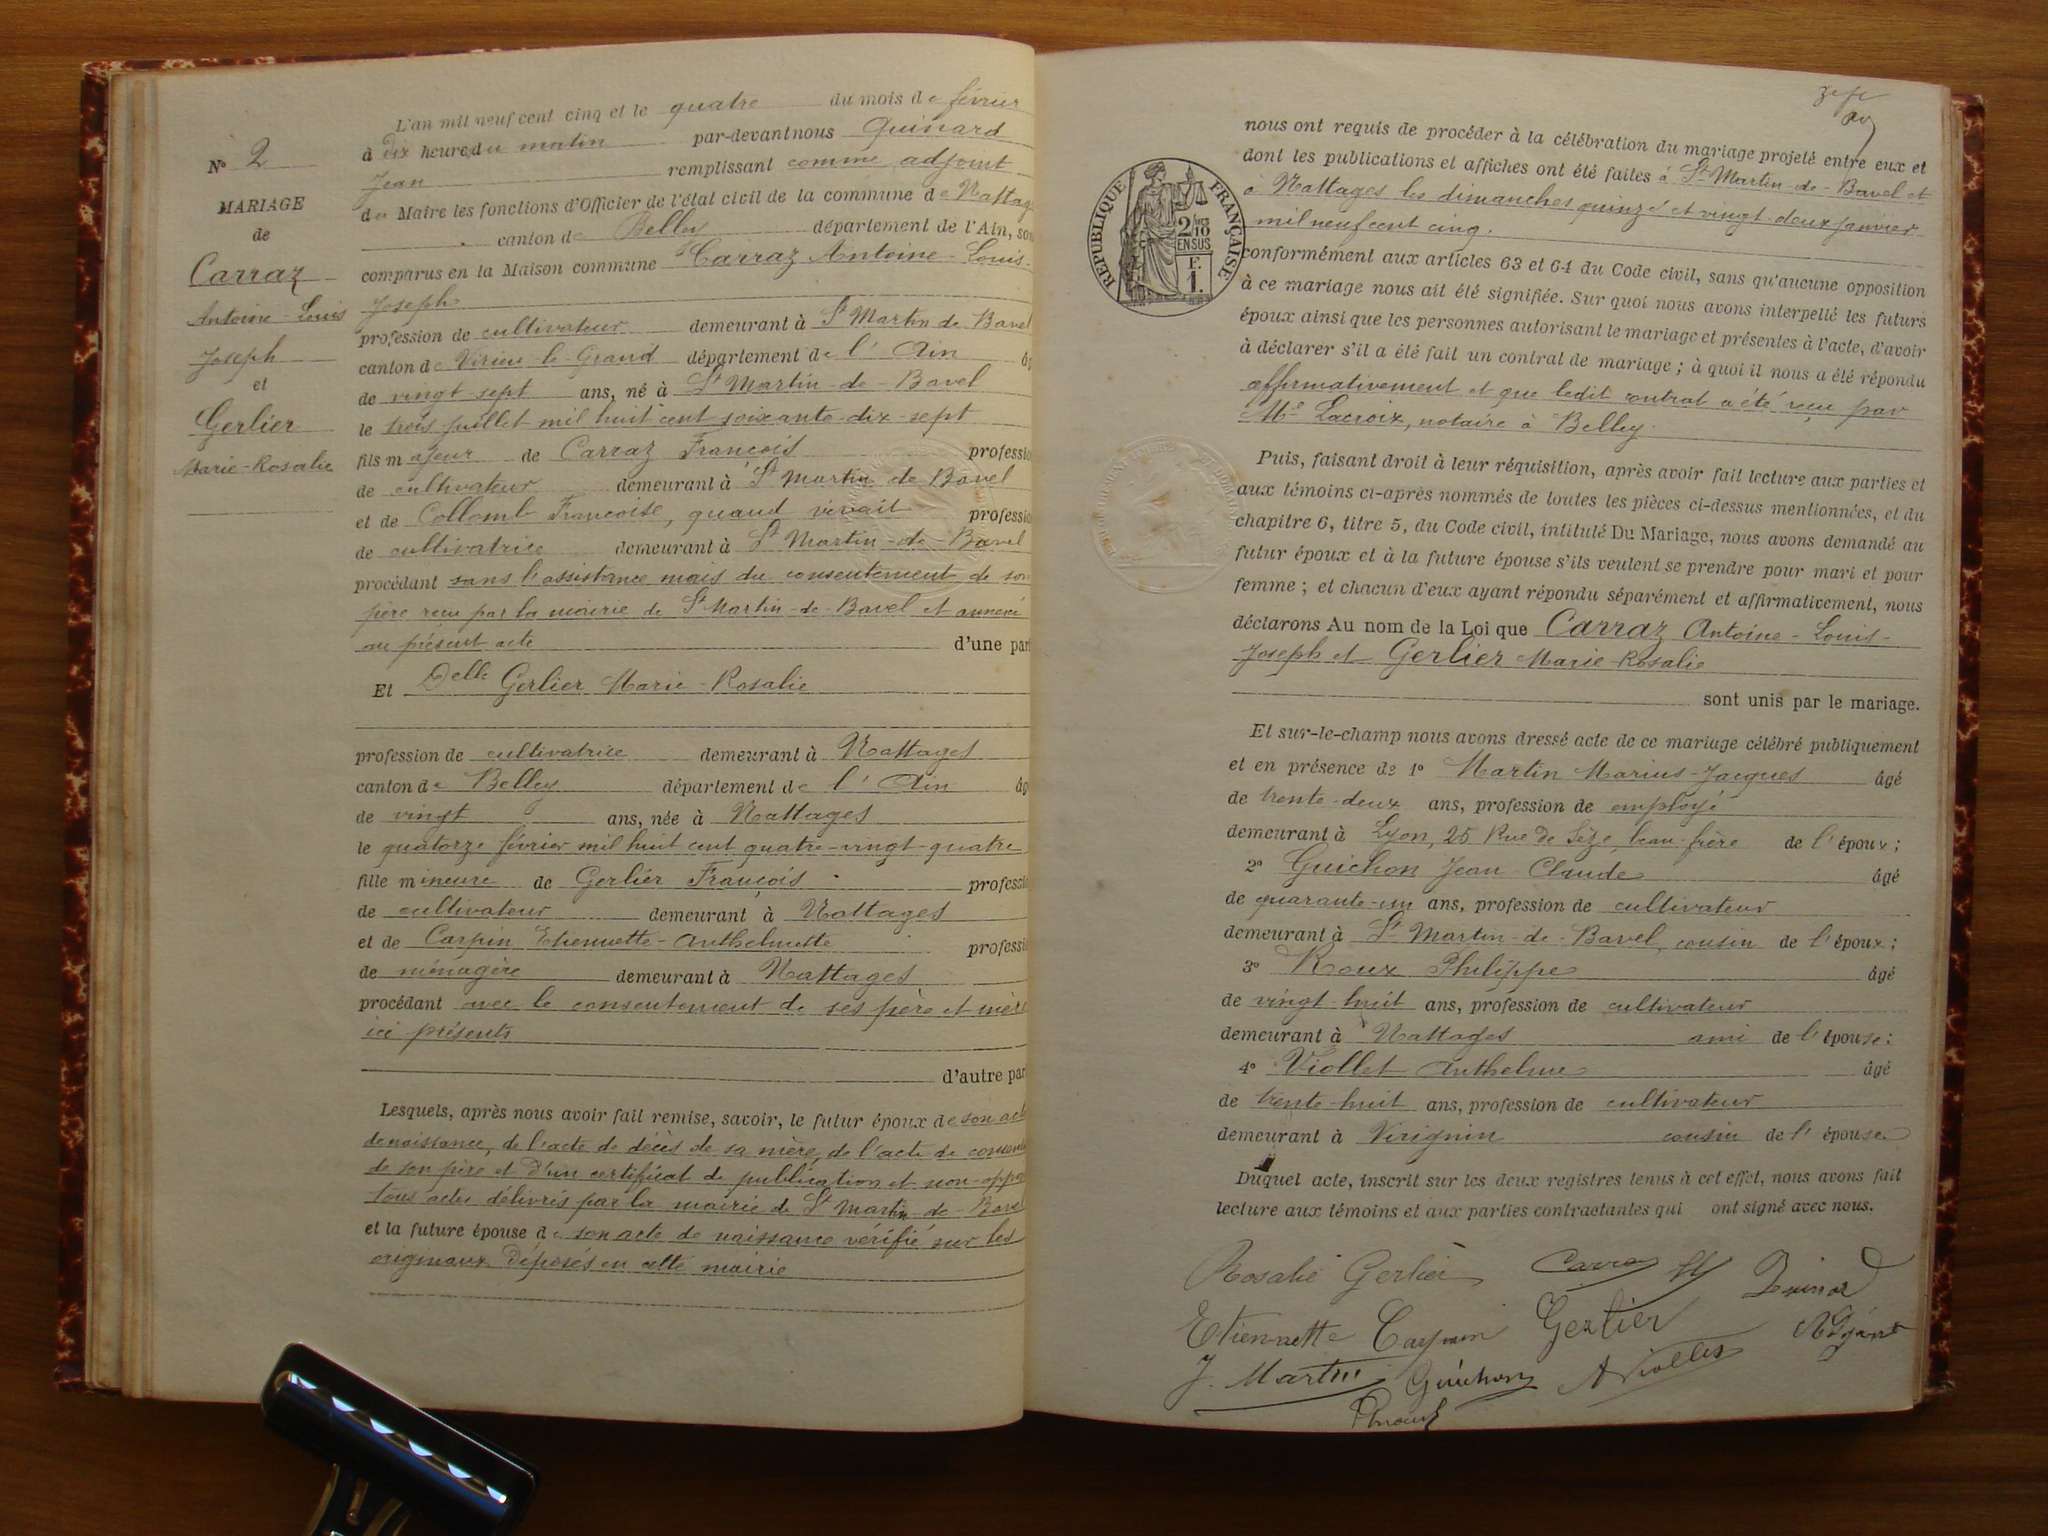 N° 2
MARIAGE
de
Carraz
Antoine-Louis
Joseph
et
Gerlier
Marie-Rosalie
L'an mil neuf cent cinq et le quatre du mois de février
à dix heures du matin par-devant nous Quinard
Jean remplissant comme adjoint
du Maire les fonctions d'Officier de l'état civil de la commune de Nattag
canton de Belley département de l'Ain, son
comparus en la Maison commune Carraz Antoine-Louis-
Joseph
profession de cultivateur demeurant à St Martin de Bavel
canton de Virieu-le-Grand département de l'Ain âg
de vingt-sept ans, né à St Martin-de-Bavel
le trois juillet mil huit cent soixante-dix-sept
fils majeur de Carraz François professio
de cultivateur demeurant à St Martin de Bavel
et de Collomb Françoise, quand vivait professio
de cultivatrice demeurant à St Martin-de-Bavel
procédant sans l'assistance mais du consentement de son
père reçu par la mairie de St Martin-de-Bavel et annexé
au présent acte d'une par
Et Delle Gerlier Marie-Rosalie
profession de cultivatrice demeurant à Nattages
canton de Belley département de l'Ain âg
de vingt ans, née à Nattages
le quatorze février mil huit cent quatre-vingt-quatre
fille mineure de Gerlier François professio
de cultivateur demeurant à Nattages
et de Carpin Etiennette-Anthelmette professi
de ménagère demeurant à Nattages
procédant avec le consentement de ses père et mère
ici présents
d'autre par
Lesquels, après nous avoir fait remise, savoir, le futur époux de son acte
de naissance, de l'acte de décès de sa mère, de l'acte de consente
de son père et d'un certificat de publication et non-oppo
tous actes délivrés par la mairie de St Martin-de-Bavel
et la future épouse de son acte de naissance vérifié sur les
originaux déposés en cette mairie
RÉPUBLIQUE FRANÇAISE
2/10
EN SUS
F.
1.
nous ont requis de procéder à la célébration du mariage projeté entre eux et
dont les publications et affiches ont été faites à St Martin-de-Bavel et
à Nattages les dimanches quinze et vingt-deux janvier
mil neuf cent cinq.
conformément aux articles 63 et 64 du Code civil, sans qu'aucune opposition
à ce mariage nous ait été signifiée. Sur quoi nous avons interpellé les futurs
époux ainsi que les personnes autorisant le mariage et présentes à l'acte, d'avoir
à déclarer s'il a été fait un contrat de mariage ; à quoi il nous a été répondu
affirmativement et que ledit contrat a été reçu par
Me Lacroix, notaire à Belley.
Puis, faisant droit à leur réquisition, après avoir fait lecture aux parties et
aux témoins ci-après nommés de toutes les pièces ci-dessus mentionnées, et du
chapitre 6, titre 5, du Code civil, intitulé Du Mariage, nous avons demandé au
futur époux et à la future épouse s'ils veulent se prendre pour mari et pour
femme ; et chacun d'eux ayant répondu séparément et affirmativement, nous
déclarons Au nom de la Loi que Carraz Antoine-Louis-
Joseph et Gerlier Marie-Rosalie
sont unis par le mariage.
Et sur-le-champ nous avons dressé acte de ce mariage célébré publiquement
et en présence de 1° Martin Marius-Jacques âgé
de trente-deux ans, profession de employé
demeurant à Lyon, 25 Rue de Sèze, beau-frère de l'époux ;
2° Guichon Jean-Claude âgé
de quarante-un ans, profession de cultivateur
demeurant à St Martin-de-Bavel, cousin de l'époux ;
3° Roux Philippe âgé
de vingt-huit ans, profession de cultivateur
demeurant à Nattages ami de l'épouse :
4° Viollet Anthelme âgé
de trente-huit ans, profession de cultivateur
demeurant à Virignin cousin de l'épouse
Duquel acte, inscrit sur les deux registres tenus à cet effet, nous avons fait
lecture aux témoins et aux parties contractantes qui ont signé avec nous.
Rosalie Gerlier Carraz Quinard
Etiennette Carpin Gerlier Adjoint
J. Martin Guichon A Viollet